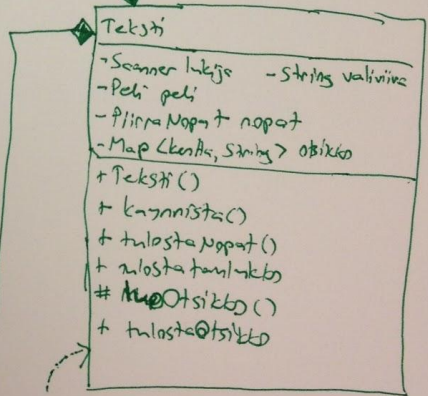 Teksti
- Scanner lukija - String valiviiva
- Peli peli
- PiirraNopat nopat
- Map <kentta, String> otsikko
+ Teksti()
+ kaynnista()
+ tulostaNopat()
+ tulostataulukko
# Otsikko()
+ tulostaOtsikko